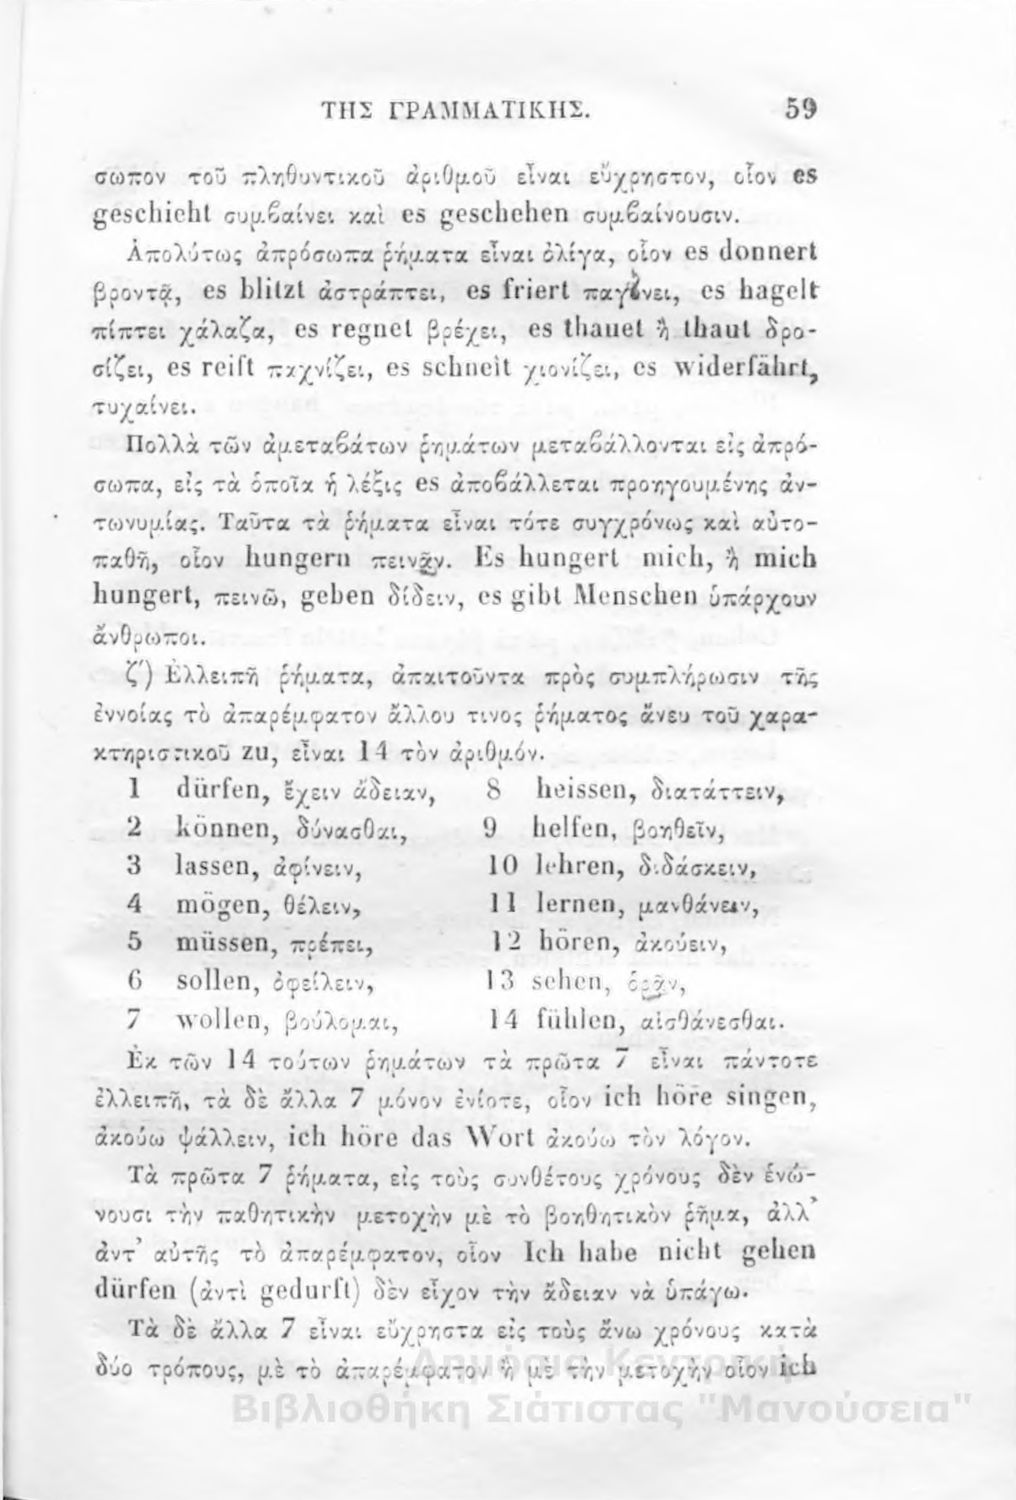 ΤΗΣ ΓΡΑΜΜΑΤΙΚΗΣ. 59
σωπον τοῦ πληθυντικοῦ ἀριθμοῦ εἶναι εὔχρηστον, οἷον es
geschieht συμβαίνει καὶ es geschehen συμβαίνουσιν.
Ἀπολύτως ἀπρόσωπα ῥήματα εἶναι ὀλίγα, οἷον es donnert
βροντᾷ, es blitzt ἀστράπτει, es friert παγόνει, es hagelt
πίπτει χάλαζα, es regnet βρέχει, es thauet ἢ thaut δρο-
σίζει, es reift παχνίζει, es schneit χιονίζει, es widerfährt,
τυχαίνει.
Πολλὰ τῶν ἀμεταβάτων ῥημάτων μεταβάλλονται εἰς ἀπρό-
σωπα, εἰς τὰ ὁποῖα ἡ λέξις es ἀποβάλλεται προηγουμένης ἀν-
τωνυμίας. Ταῦτα τὰ ῥήματα εἶναι τότε συγχρόνως καὶ αὐτο-
παθῆ, οἷον hungern πεινᾷν. Es hungert mich, ἢ mich
hungert, πεινῶ, geben δίδειν, es gibt Menschen ὑπάρχουν
ἄνθρωποι.
ζ') Ἐλλειπῆ ῥήματα, ἀπαιτοῦντα πρὸς συμπλήρωσιν τῆς
ἐννοίας τὸ ἀπαρέμφατον ἄλλου τινος ῥήματος ἄνευ τοῦ χαρα-
κτηριστικοῦ zu, εἶναι 14 τὸν ἀριθμόν.
1 dürfen, ἔχειν ἄδειαν, 8 heissen, διατάττειν,
2 können, δύνασθαι, 9 helfen, βοηθεῖν,
3 lassen, ἀφίνειν, 10 lehren, διδάσκειν,
4 mögen, θέλειν, 11 lernen, μανθάνειν,
5 müssen, πρέπει, 12 hören, ἀκούειν,
6 sollen, ὀφείλειν, 13 sehen, ὁρᾷν,
7 wollen, βούλομαι, 14 fühlen, αἰσθάνεσθαι.
Ἐκ τῶν 14 τούτων ῥημάτων τὰ πρῶτα 7 εἶναι πάντοτε
ἐλλειπῆ, τὰ δὲ ἄλλα 7 μόνον ἐνίοτε, οἷον ich höre singen,
ἀκούω ψάλλειν, ich höre das Wort ἀκούω τὸν λόγον.
Τὰ πρῶτα 7 ῥήματα, εἰς τοὺς συνθέτους χρόνους δὲν ἑνώ-
νουσι τὴν παθητικὴν μετοχὴν μὲ τὸ βοηθητικὸν ῥῆμα, ἀλλ'
ἀντ' αὐτῆς τὸ ἀπαρέμφατον, οἷον Ich habe nicht gehen
dürfen (ἀντὶ gedurft) δὲν εἶχον τὴν ἄδειαν νὰ ὑπάγω.
Τὰ δὲ ἄλλα 7 εἶναι εὔχρηστα εἰς τοὺς ἄνω χρόνους κατὰ
δύο τρόπους, μὲ τὸ ἀπαρέμφατον ἢ μὲ τὴν μετοχὴν οἷον ich
Δημόσια Κεντρική
Βιβλιοθήκη Σιάτιστας "Μανούσεια"